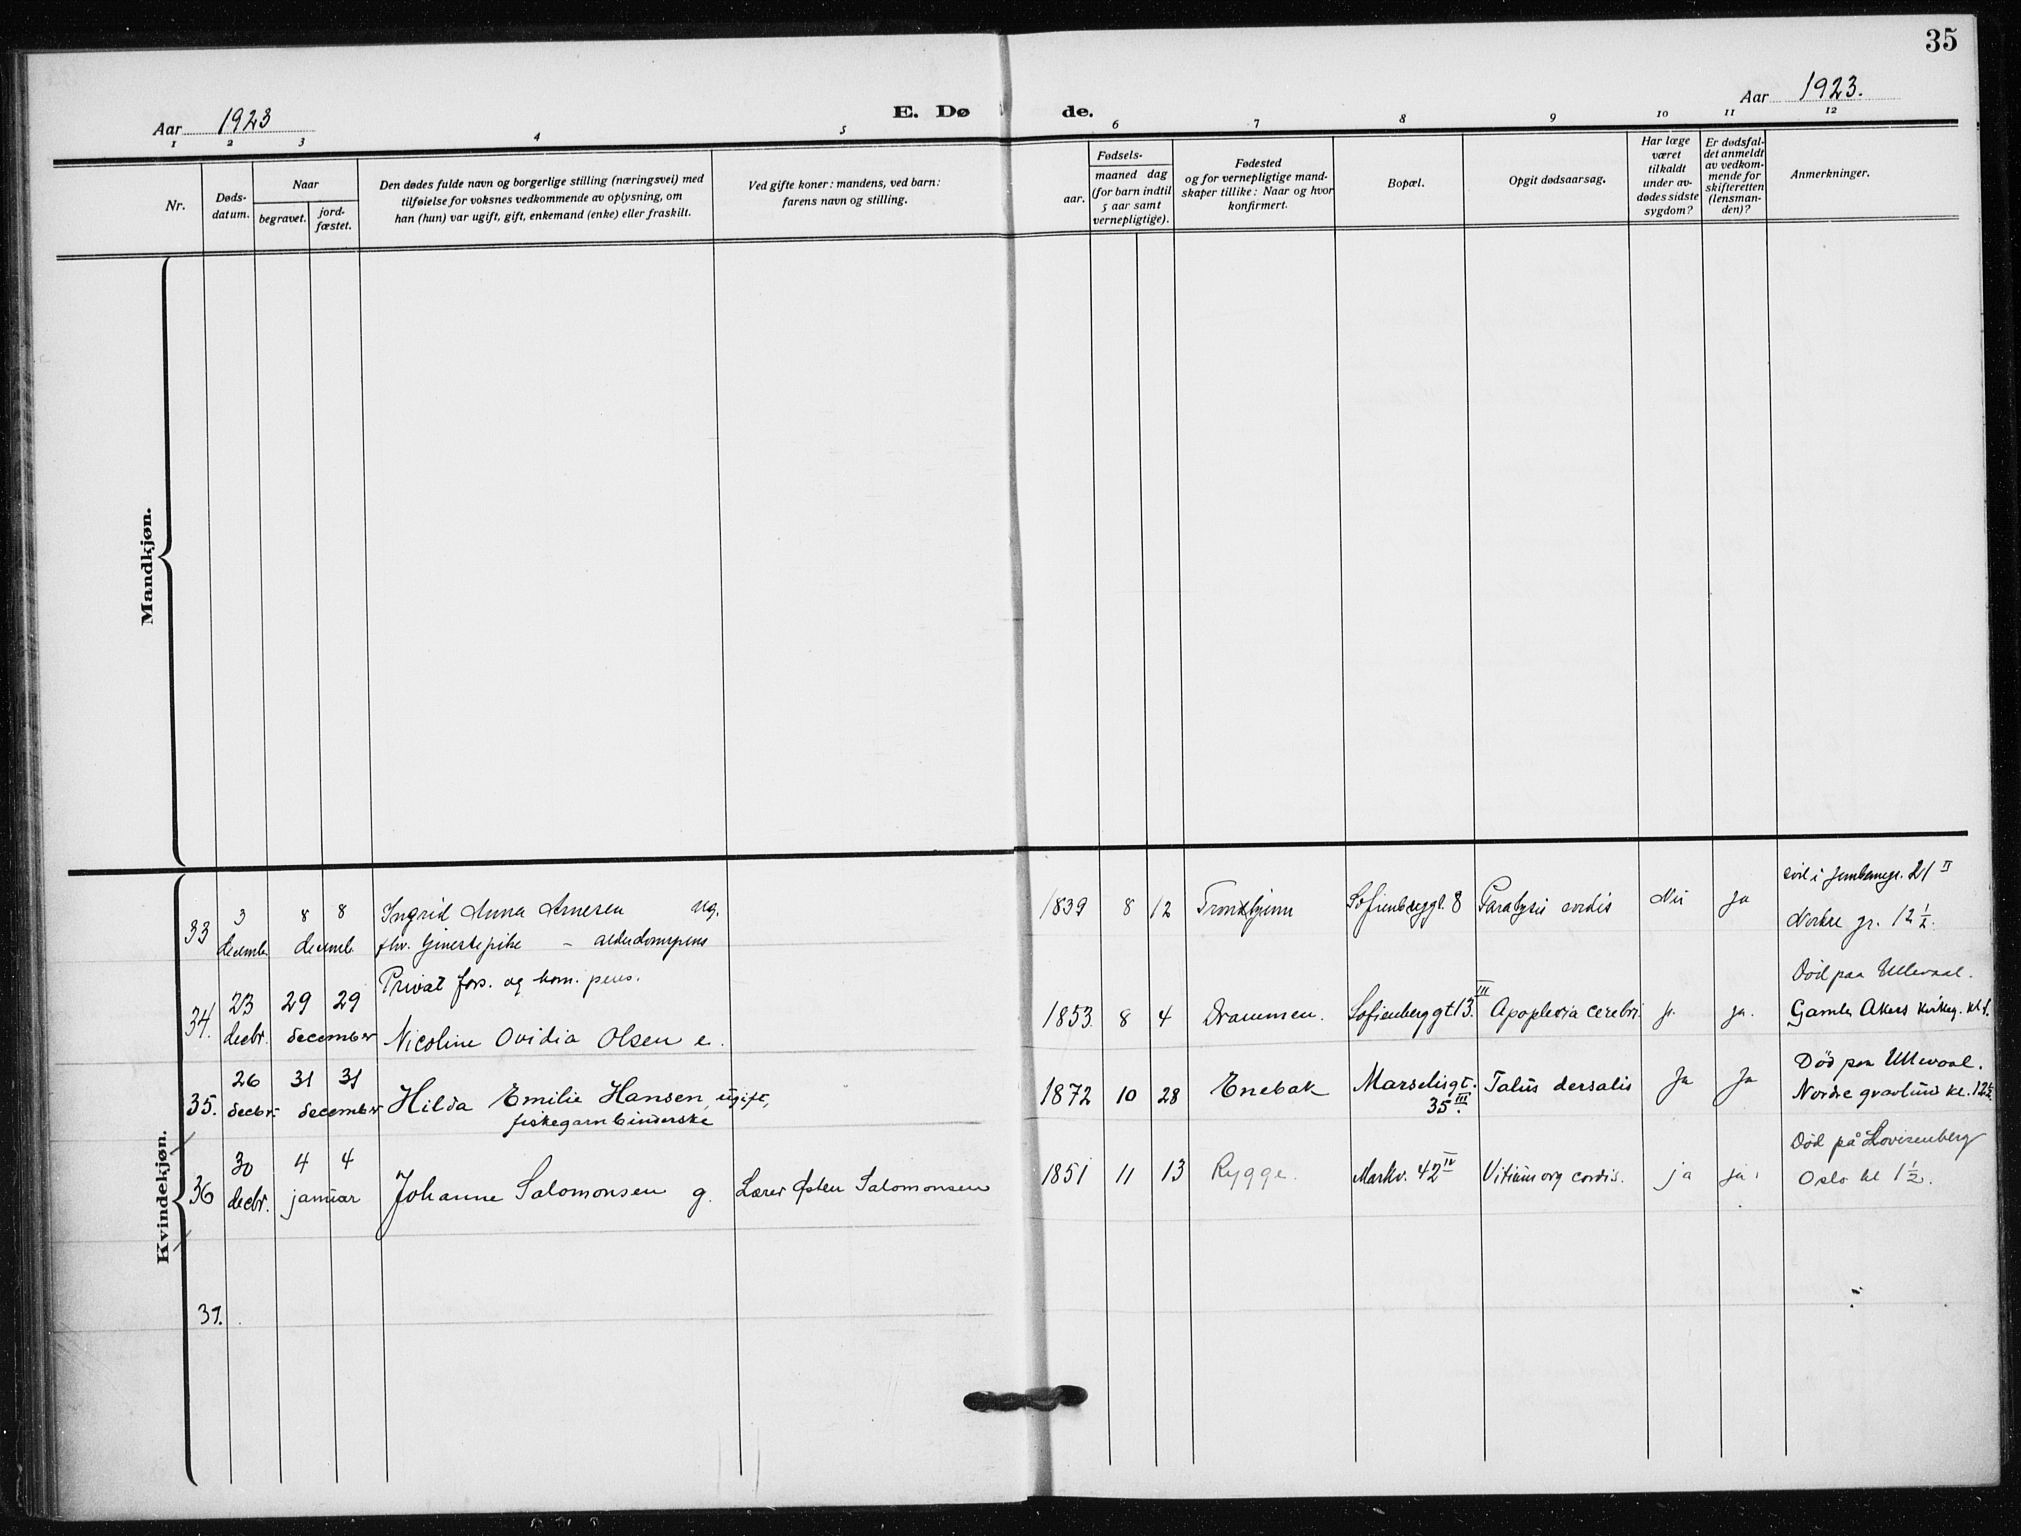 35
Aar 1923
E. Dø de.
Aar 1923.
1 2 3 4 5 6 7 8 9 10 11 12
Nr.
Døds-
datum.
Naar
begravet.
jord-
fæstet.
Den dødes fulde navn og borgerlige stilling (næringsvei) med
tilføielse for voksnes vedkommende av oplysning, om
han (hun) var ugift, gift, enkemand (enke) eller fraskilt.
Ved gifte koner: mandens, ved barn:
farens navn og stilling.
Fødsels-
aar.
maaned dag
(for barn indtil
5 aar samt
vernepligtige).
Fødested
og for vernepligtige mand-
skaper tillike: Naar og hvor
konfirmert.
Bopæl.
Opgit dødsaarsag.
Har læge
været
tilkaldt
under av-
dødes sidste
sygdom?
Er dødsfal-
det anmeldt
av vedkom-
mende for
skifteretten
(lensman-
den)?
Anmerkninger.
Mandkjøn.
Kvindekjøn.
33
3
decemb.
8 8
decemb.
Ingrid Anna Arnesen ug.
fhv. tjenestepike - alderdomspens
1839 8 12
Trondhjem
Sofienberggt. 8
Paralysis cordis
Nei
Ja
21 II
Nordre gr. 12 1/2.
34.
23
decbr.
29 29
december
Privat fors. og kom. pens.
Nicoline Ovidia Olsen e.
1853. 8 4
Drammen.
Sofienberggt 13. III
Apoplexia cerebri.
ja.
Død paa Ullevaal.
Gamle Akers kirkeg.
35.
26
decbr.
31 31
december
Hilda Emilie Hansen, ugift,
fiskegarnbinderske
1872 10 28
Enebak
Marselisgt.
35 III.
Talus dersalis
Ja
Ja
Død paa Ullevaal.
Nordre gravlund kl. 12 1/2.
36
30
decbr.
4 4
januar
Johanne Salomonsen g.
Lærer Østen Salomonsen
1851 11 13
Rygge.
Markv. 42 IV
Vitium org cordis.
ja
ja.
Død på Lovisenberg
Oslo kl 1 1/2.
37.